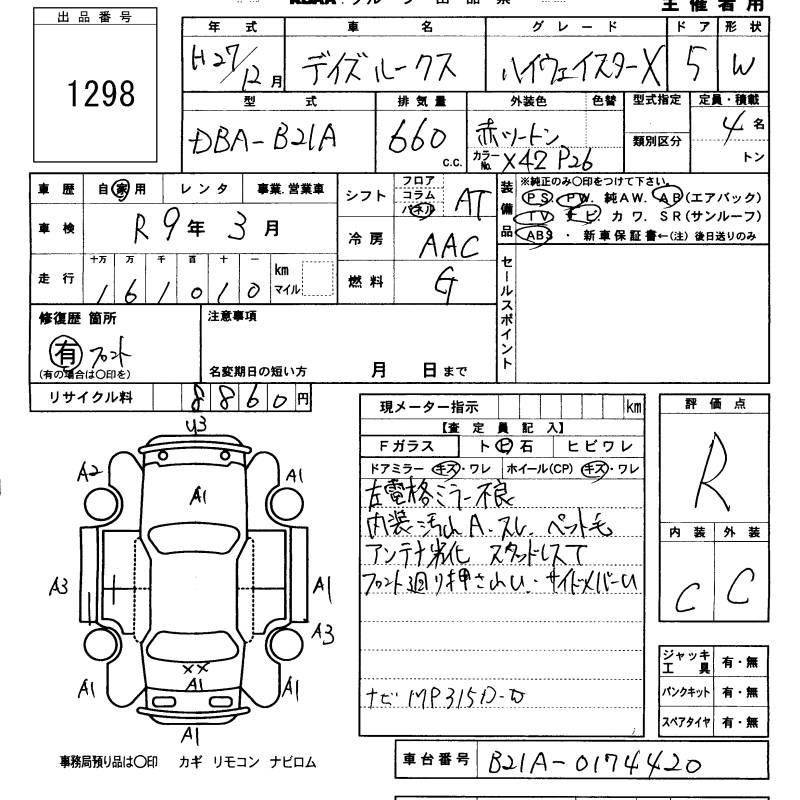 主催者用
出品番号
1298
年式 車名 グレード ドア 形状
H27/12月 デイズルークス ハイウェイスターX 5 W
型式 排気量 外装色 色替 型式指定 定員・積載
DBA-B21A 660 c.c. 赤ツートン 類別区分 4名
カラーNo. X42 P26 トン
車歴 自家用 レンタ 事業.営業車
シフト フロア コラム パネル AT
装備品 ※純正のみ〇印をつけて下さい。
PS. PW. 純AW. AB(エアバック)
TV ナビ カワ. SR(サンルーフ)
ABS ・ 新車保証書←(注) 後日送りのみ
車検 R9年3月
冷房 AAC
走行 十万 万 千 百 十 一
161010 km マイル
燃料 G
セールスポイント
修復歴 箇所 注意事項
有 フロント
(有の場合は〇印を) 名変期日の短い方 月 日まで
リサイクル料 8860円
現メーター指示 km
評価点
R
内装 外装
C C
【査定員記入】
Fガラス トビ石 ヒビワレ
ドアミラー キズ・ワレ ホイール(CP) キズ・ワレ
左電格ミラー不良
内装汚れ A.スレ. ペット毛
アンテナ劣化 スタッドレスT
フロント廻り押され. サイドメンバーU
ナビ MP315D-W
U3
A2 A1
A1
A3 A1
A3
A1 XX A1 A1
A1
ジャッキ工具 有・無
パンクキット 有・無
スペアタイヤ 有・無
事務局預り品は〇印 カギ リモコン ナビロム
車台番号 B21A-0174420